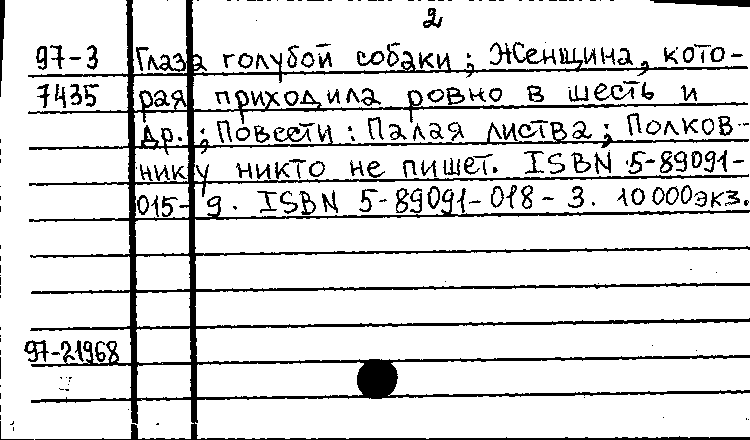 2
97-3 Глаза голубой собаки; Женщина, кото-
7435 рая приходила ровно в шесть и
др.; Повести: Палая листва; Полков-
нику никто не пишет. ISBN 5-89091-
015-9. ISBN 5-89091-018-3. 10000экз.
97-21968